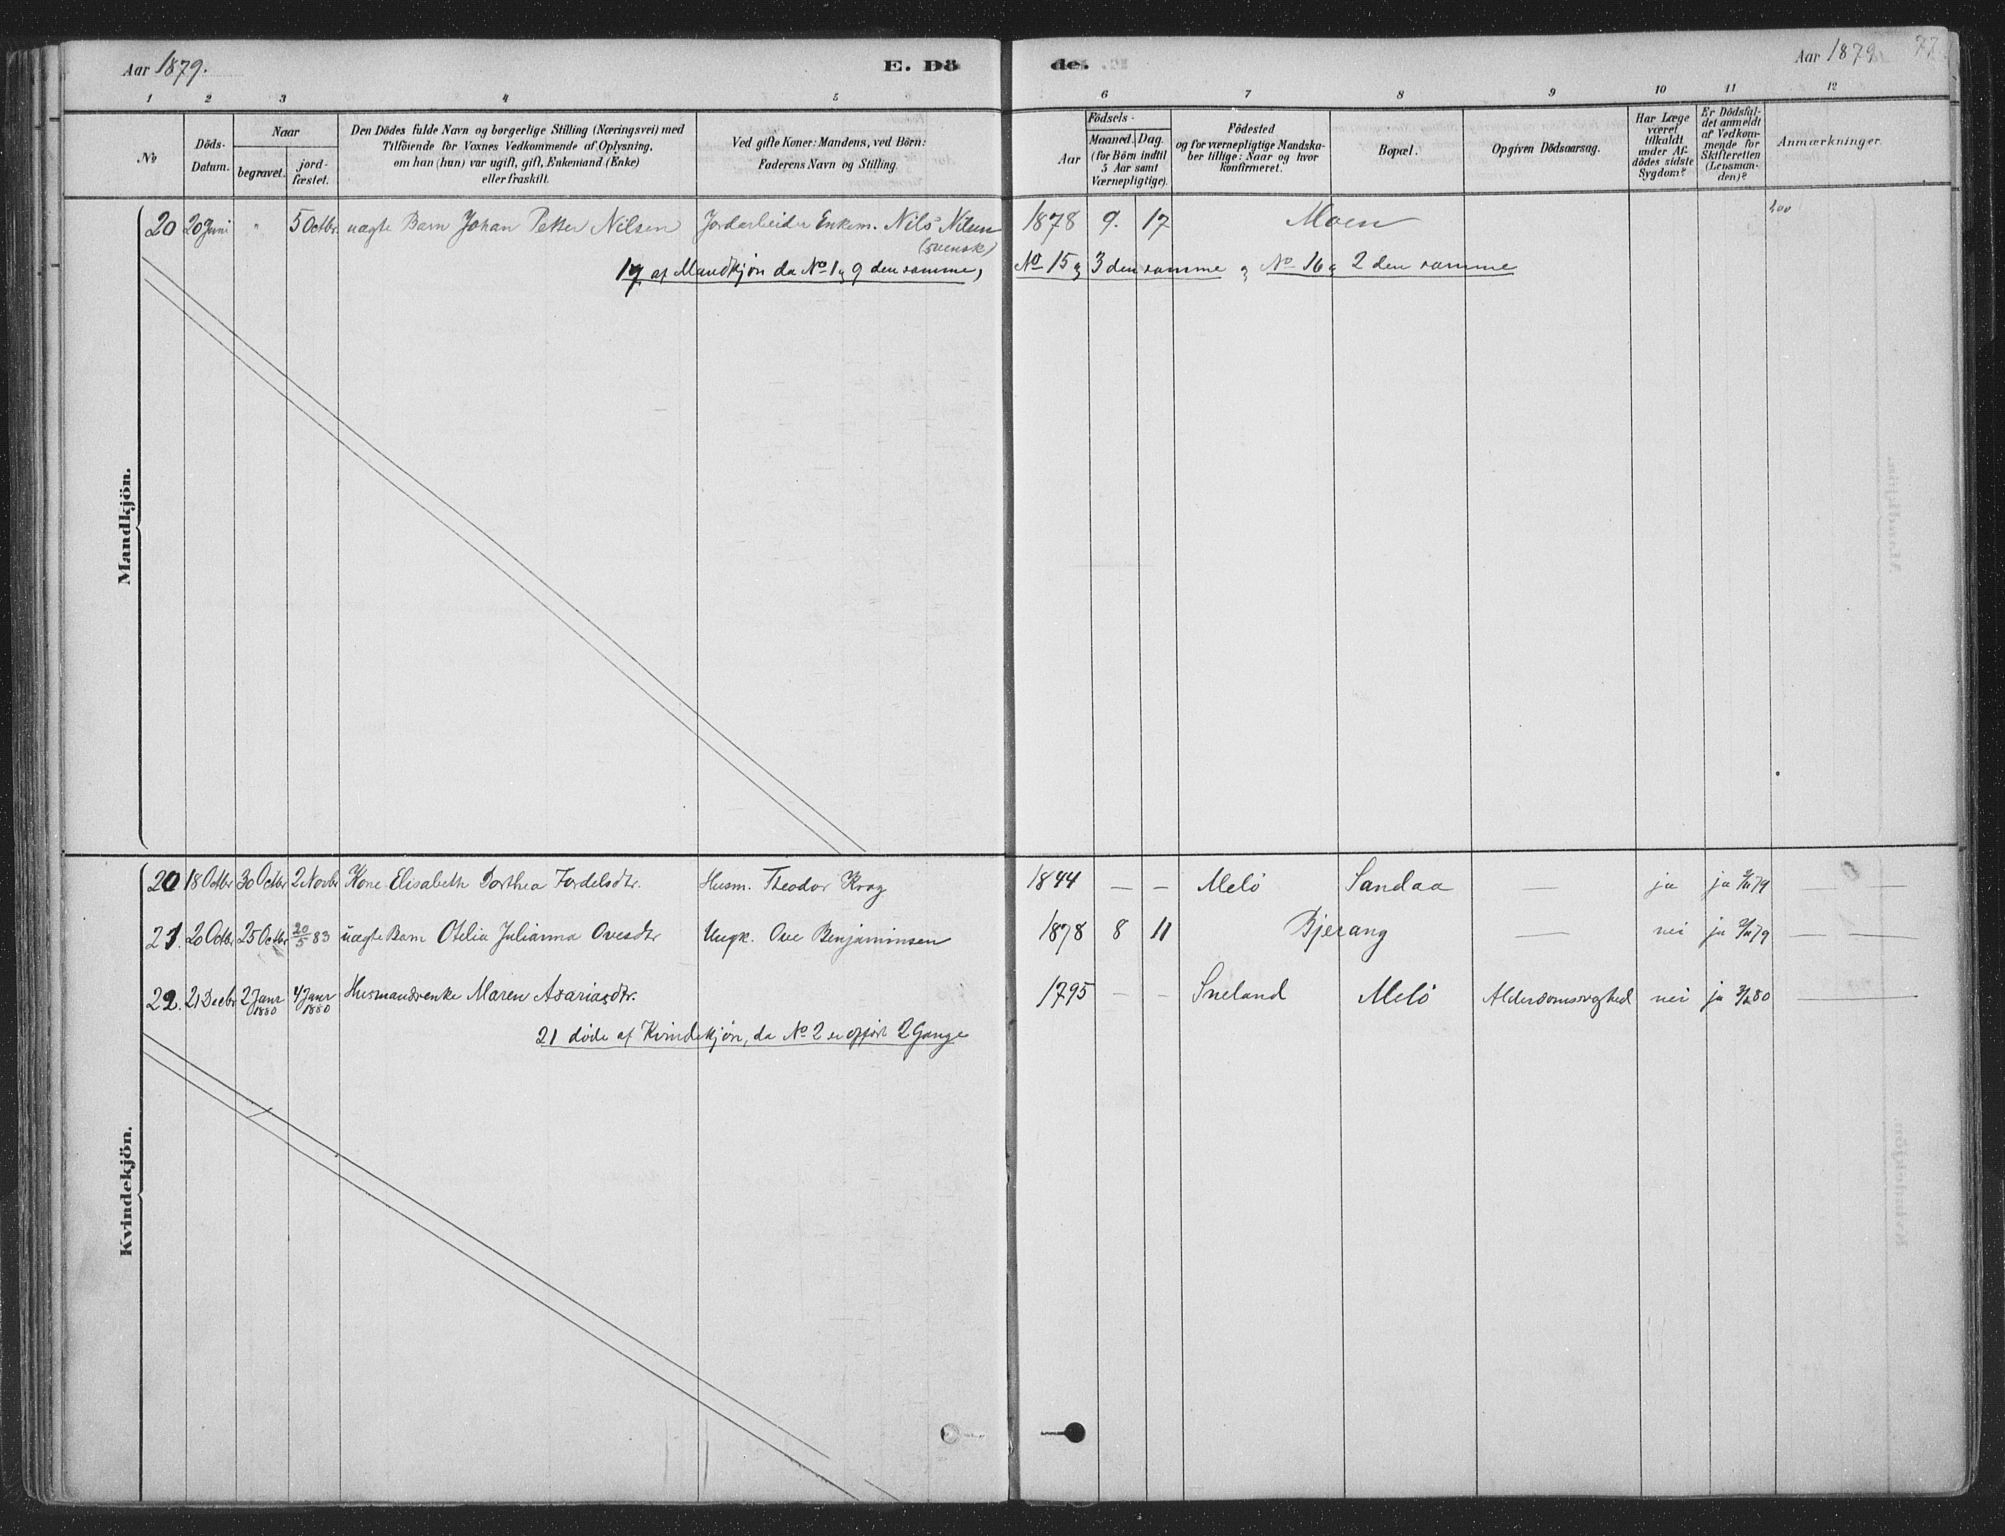 Aar 1879.
E. Dö
de.
Aar 1879
77
1 2 3 4 5 6 7 8 9 10 11 12
No
Döds-
Datum.
Naar
begravet.
jord-
fæstet.
Den Dödes fulde Navn og borgerlige Stilling (Næringsvei) med
Tilföiende for Voxnes Vedkommende af Oplysning,
om han (hun) var ugift, gift, Enkemand (Enke)
eller fraskilt.
Ved gifte Koner: Mandens, ved Börn:
Faderens Navn og Stilling.
Födsels-
Aar
Maaned. Dag.
(for Börn indtil
5 Aar samt
Værnepligtige).
Födested
og for værnepligtige Mandska-
ber tillige: Naar og hvor
konfirmeret.
Bopæl.
Opgiven Dödsaarsag.
Har Læge
været
tilkaldt
under Af-
dödes sidste
Sygdom?
Er Dödsfal-
det anmeldt
af Vedkom-
mende for
Skifteretten
(Lensman-
den)?
Anmærkninger.
Mandkjön.
20 20 Juni " 5 Octbr. uægte Barn Johan Petter Nilsen Jordarbeider Enkem. Nils Nilsen 1878 9. 17 Moen
(svensk)
17 af Mandkjøn da No 1 og 9 den samme, No 15 og 3 den samme og No 16 og 2 den samme
Kvindekjön.
20 18 Octbr 30 Octbr 2 Novbr Kone Elisabeth Dorthea Fordelsdtr. Husm. Theodor Krog 1844 — — Melö Sandaa — ja ja 79 — —
21. 20 Octbr 25 Octbr 20/5 83 uægte Barn Otelia Julianna Ovesdtr Ungk. Ove Benjaminsen 1878 8 11 Bjerang — nei ja 79 — —
22. 21 Decbr 2 Janr 1880 4 Janr 1880 Husmandsenke Maren Asariasdtr. 1795 — — Sneland Melö Alderdomssvaghed nei ja 80 —
21 døde af Kvindekjön, da No 2 er opført 2 Gange